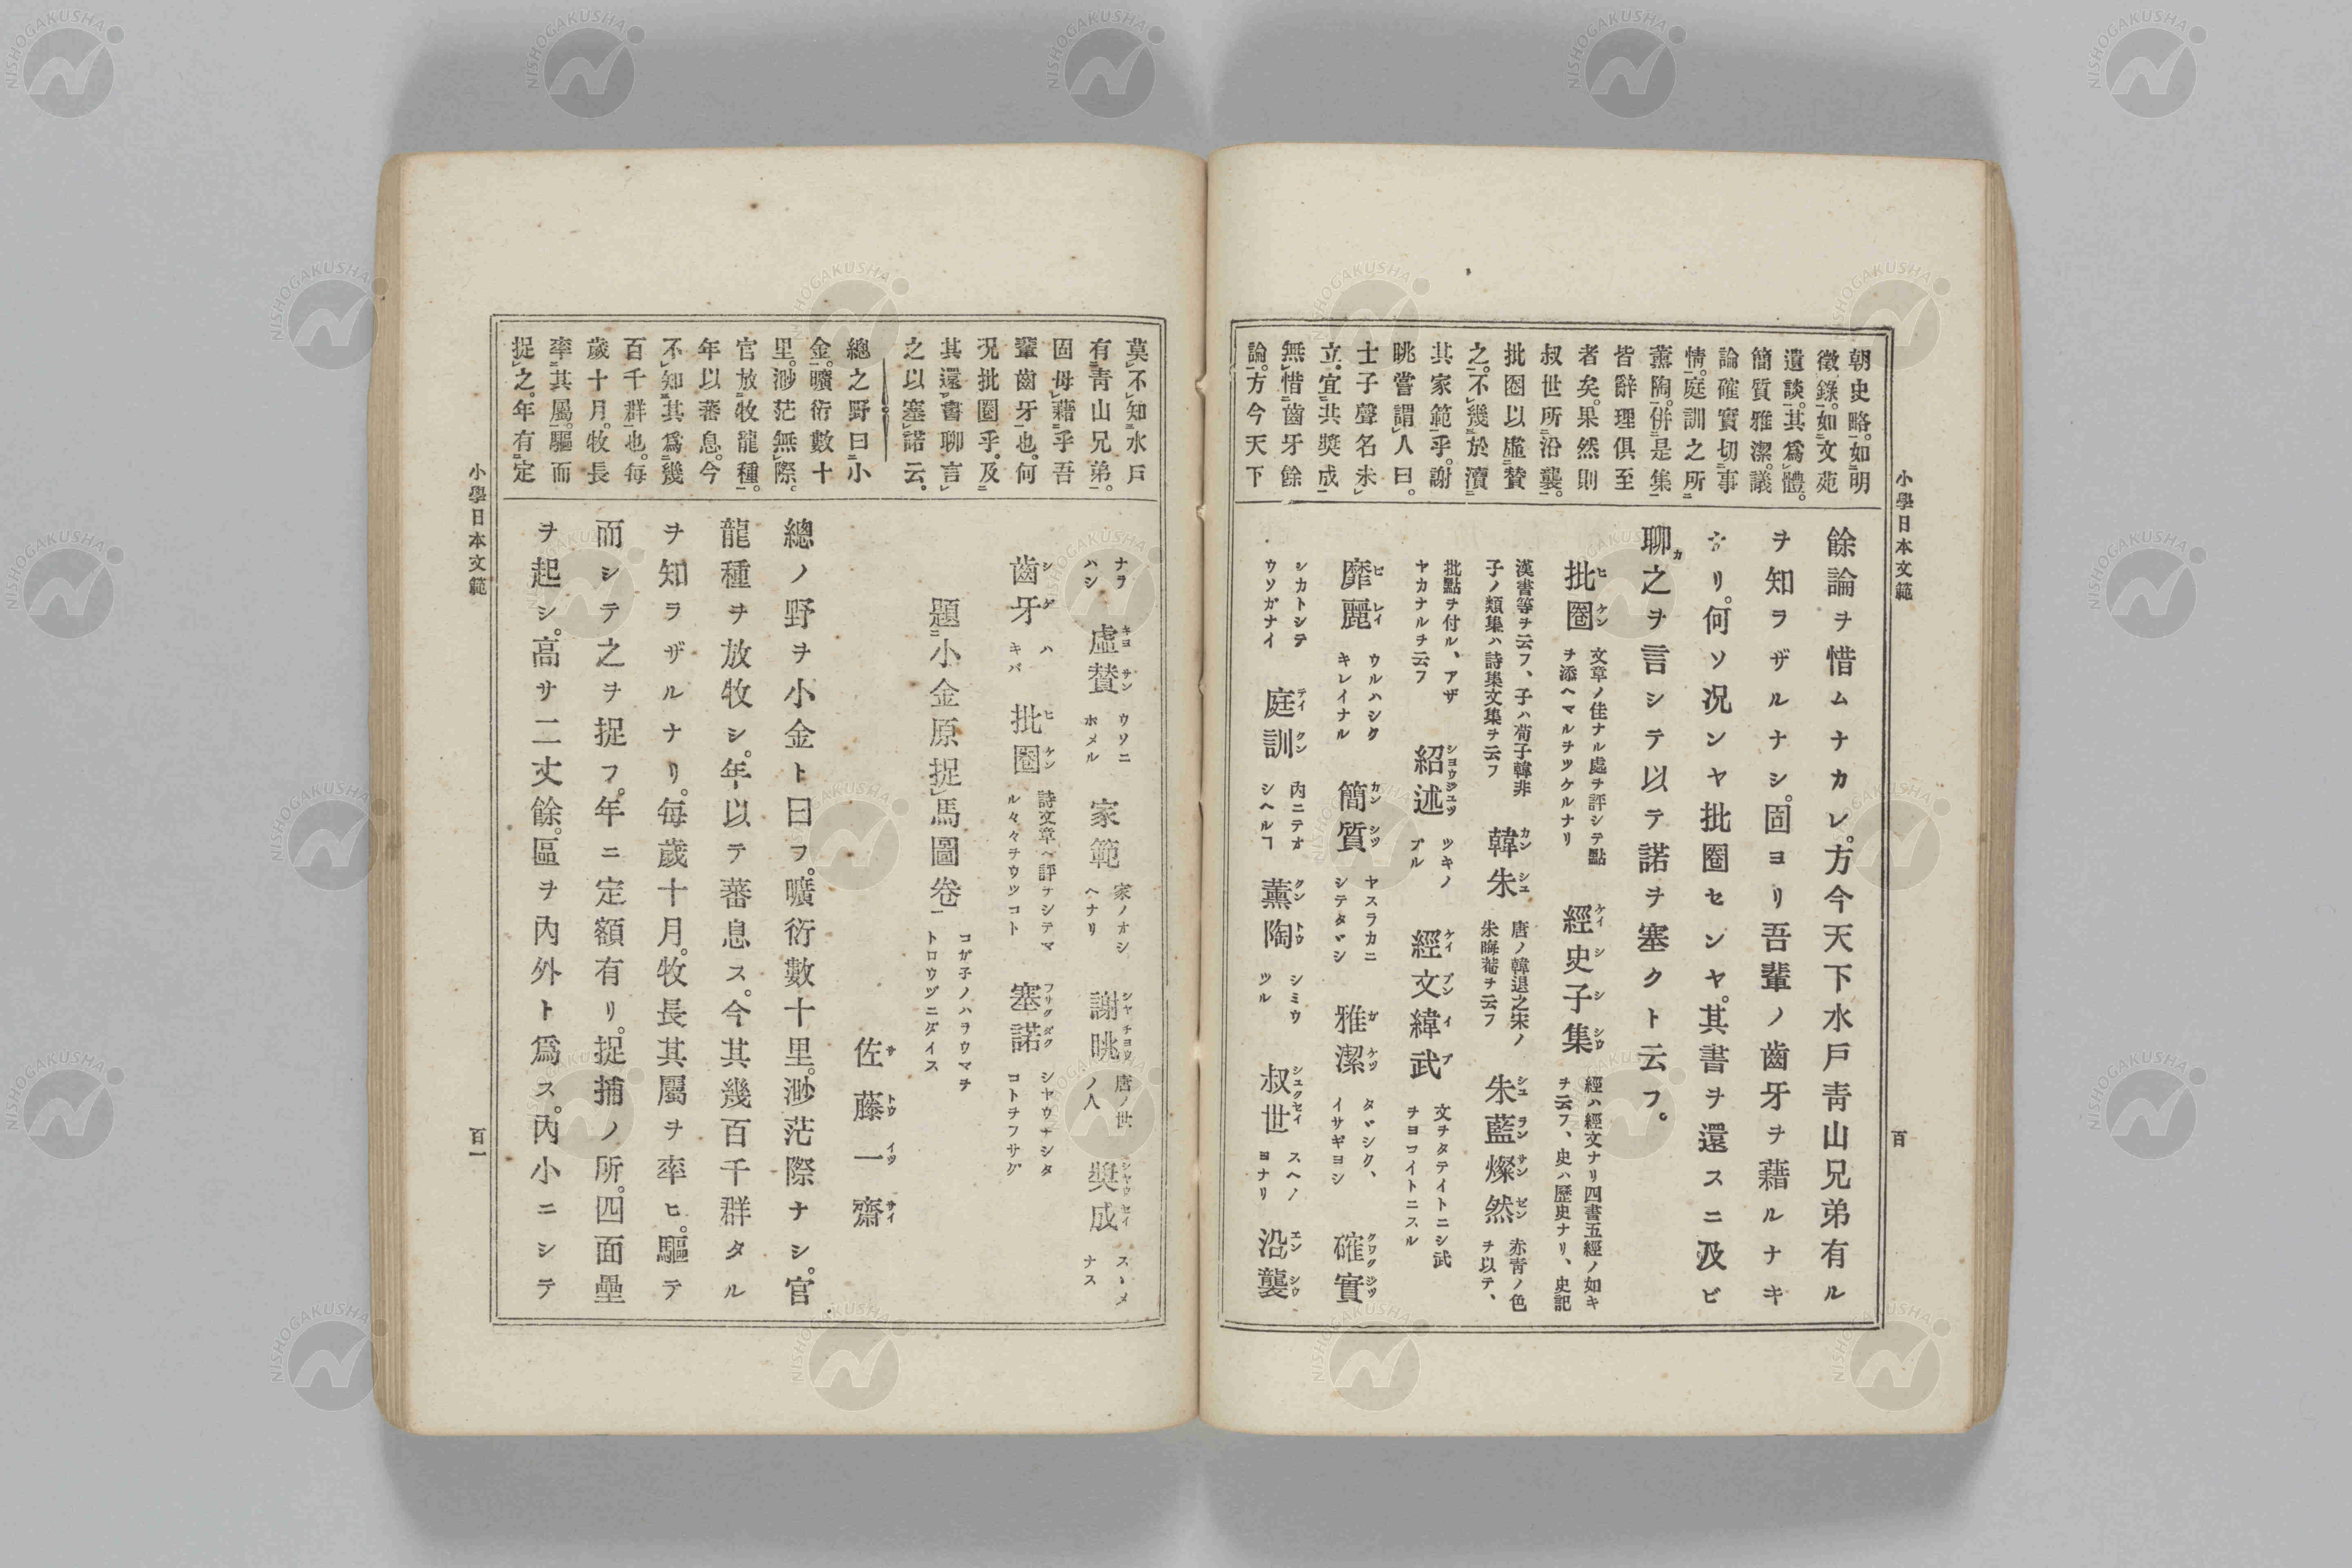 小學日本文範
百
朝史略。如明
徵錄。如文苑
遺談。其爲體。
簡質雅潔。議
論確實切事
情。庭訓之所
薰陶。併是集
皆辭理俱至
者矣。果然則
叔世所沿襲。
批圈以虛贊
之。不幾於瀆
其家範乎。謝
眺嘗謂人曰。
士子聲名未
立。宜共奬成
無惜齒牙餘
論。方今天下
餘論ヲ惜ムナカレ。方今天下水戶靑山兄弟有ル
ヲ知ラザルナシ。固ヨリ吾輩ノ齒牙ヲ藉ルナキ
リ。何ソ況ンヤ批圈センヤ。其書ヲ還スニ及ビ
聊カ之ヲ言シテ以テ諾ヲ塞クト云フ。
批圈 ヒケン 文章ノ佳ナル處ヲ評シテ點ヲ添ヘマルヲツケルナリ 經史子集 ケイシシシウ 經ハ經文ナリ四書五經ノ如キヲ云フ、史ハ歷史ナリ、史記
漢書等ヲ云フ、子ハ荀子韓非子ノ類集ハ詩集文集ヲ云フ 韓朱 カンシユ 唐ノ韓退之宋ノ朱晦菴ヲ云フ 朱藍燦然 シユランサンゼン 赤青ノ色ヲ以テ、
批點ヲ付ル、アザヤカナルヲ云フ 紹述 シヨウジユツ ツキノブル 經文緯武 ケイブンイブ 文ヲタテイトニシ武ヲヨコイトニスル
靡麗 ヒレイ ウルハシクキレイナル 簡質 カンシツ ヤスラカニシテタヾシ 雅潔 ガケツ タヾシク、イサギヨシ 確實 クワクジツ
シカトシテウソガナイ 庭訓 テイクン 內ニテオシヘルヿ 薰陶 クントウ シミウツル 叔世 シユクセイ スヘノヨナリ 沿襲 エンシウ
莫不知水戶
有靑山兄弟。
固毋藉乎吾
輩齒牙也。何
況批圈乎。及
其還書聊言
之以塞諾云。
總之野曰小
金。曠衍數十
里。渺茫無際。
官放牧龍種。
年以蕃息。今
不知其爲幾
百千群也。每
歲十月。牧長
率其屬。驅而
捉之。年有定
ナラハシ 虛贊 キヨサン ウソニホメル 家範 家ノオシヘナリ 謝眺 シヤチヨウ 唐ノ世ノ人 奬成 シヤウセイ スヽメナス
齒牙 シゲ ハキバ 批圈 ヒケン 詩文章ヘ評ヲシテマル々々ヲウツコト 塞諾 フサグダク シヤウチシタコトヲフサグ
題小金原捉馬圖卷 コガ子ノハラウマヲトロウヅニダイス
佐藤一齋 サトウイツサイ
總ノ野ヲ小金ト曰フ。曠衍數十里。渺茫際ナシ。官
龍種ヲ放牧シ。年以テ蕃息ス。今其幾百千群タル
ヲ知ラザルナリ。每歲十月。牧長其屬ヲ率ヒ。驅テ
而シテ之ヲ捉フ。年ニ定額有リ。捉捕ノ所。四面壘
ヲ起シ。高サ二丈餘。區ヲ內外ト爲ス。內小ニシテ
小學日本文範
百一